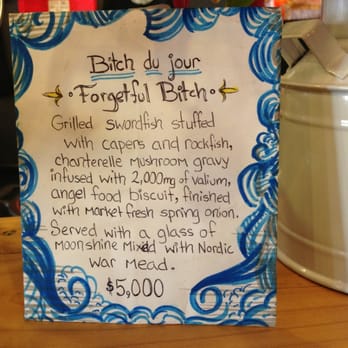 Bitch du jour
Forgetful Bitch
Grilled swordfish stuffed
with capers and rockfish,
chanterelle mushroom gravy
infused with 2,000mg of valium,
angel food biscuit, finished
with market fresh spring onion.
Served with a glass of
Moonshine Mixed with Nordic
war mead.
$5,000